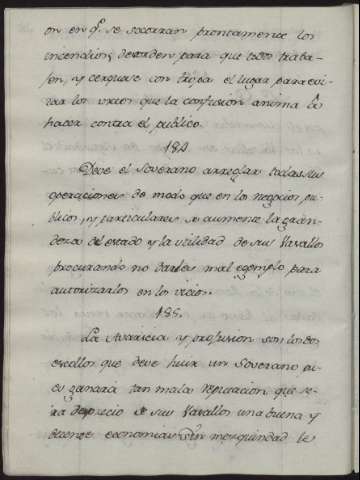 on en q.e se socorran prontamente los
incendios, de orden para que todos traba-
jen, y cerquase con tropa el lugar para evi-
tar los vicios que la confusion anima â
hacer contra el publico.
184
Deve el Soverano arreglar todas sus
operaciones de modo que en los negocios pu-
blicos, y particulares se aumente la gran-
deza del estado y la utilidad de sus Vasallos
procurando no darles mal egemplo para
autorizarlos en los vicios.
185.
La Avaricia y profusion son los dos
escollos que deve huir un Soverano
ganará tan mala reputacion, que se-
rá desprecio de sus Vasallos una buena y
decente economia sin mezquindad le